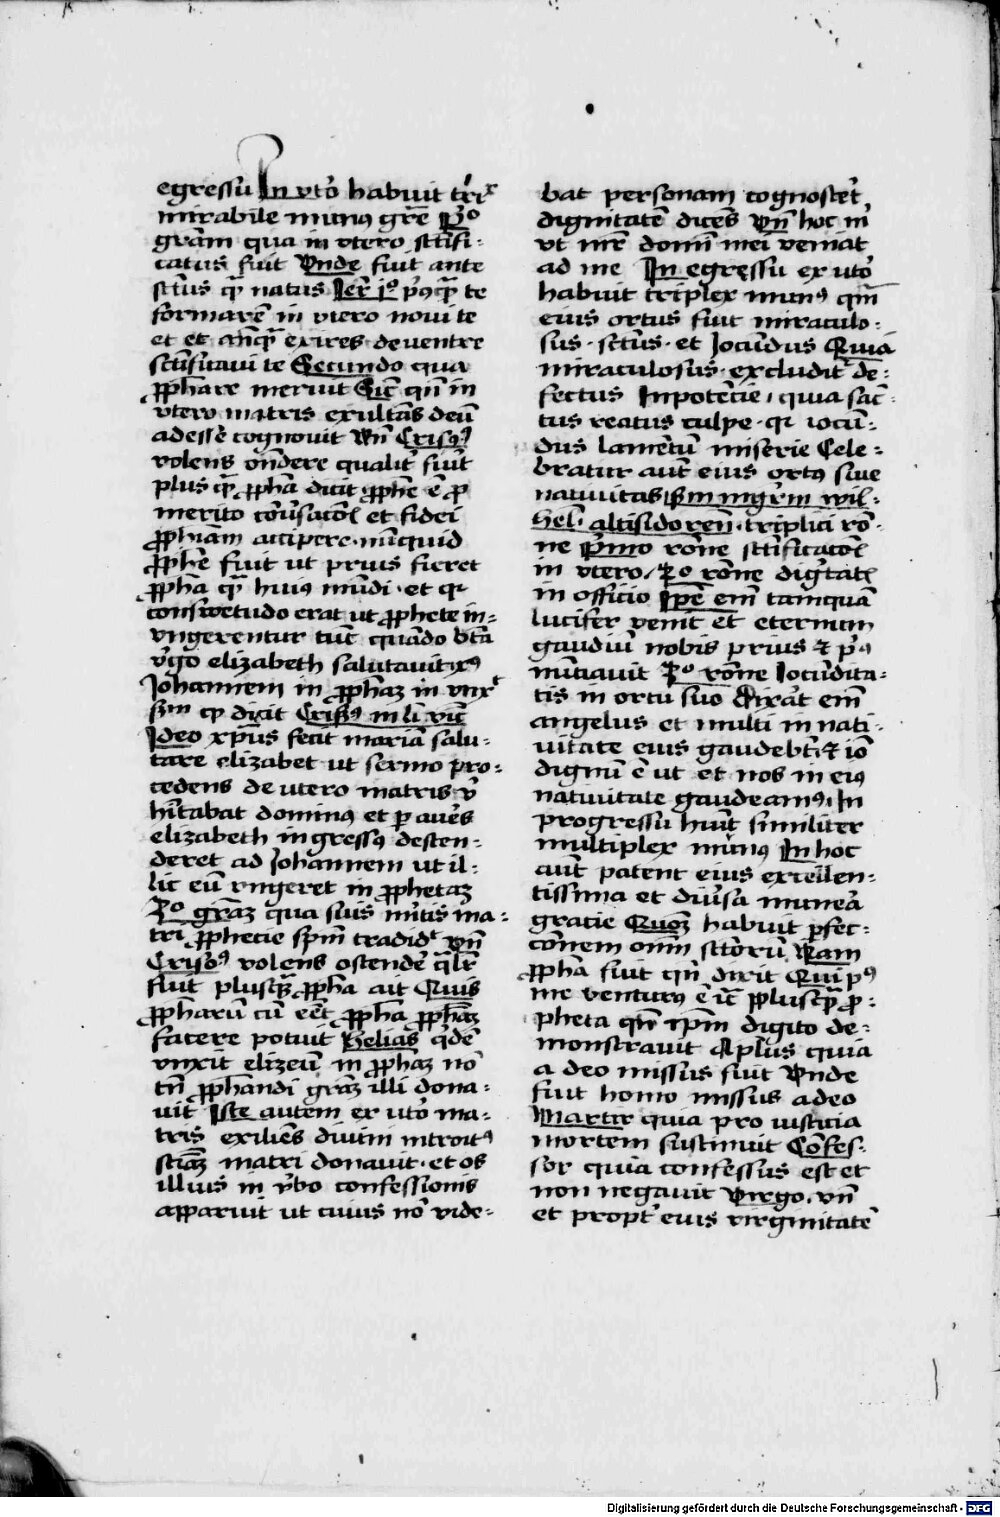 egressu In vtō habuit tͥrͯ
mirabile munꝰ grē Pͦ
grām qua in vtero sctīfi-
catus fuit Vnde fuit ante
sctūs qͣ natus Jer̄ jͦ pͥꝰqͣ te
formarē in vtero noui te
et et anqͣ exires de ventre
sctīficaui te Secundo qua
ꝓphare meruit Sic̄ qn̄ in
vtero matris exultās deū
adesse cognouit vn̄ Crisꝰ
volens on̄dere qualit̄ fuit
plus qͣ ꝓpha dicit ꝓphe ē ꝓ
merito cōuersacōis et fidei
ꝓphiam accipere nūquid
ꝓphe fuit ut prius fieret
ꝓpha qͣ huius mūdi et qꝛ
conswetudo erat ut ꝓphete in-
vngerentur tūc quādo btā
vgͦo elizabeth salutauit xꝰ
Johannem in ꝓphaꝫ in vnxͭ
Scdm ꝙ dicit Crisꝰ in li vic̄
Ideo xp̄us fecit mariā salu-
tare elizabet ut sermo pro-
cedens de utero matris vͥ
hītabat dominꝰ et ꝑ aures
elizabeth in gressꝰ descen-
deret ad Johannem ut il-
lic eū vngeret in ꝓphetaꝫ
3ͦ grāꝫ qua suis mītis ma-
tri ꝓphecie spm̄ tradidͭ vn̄
Crisoꝰ volens ostendē qͣlr̄
fuit plusqͣꝫ ꝓpha ait Quis
ꝓpharū cū eēt ꝓpha ꝓphāꝫ
facere potuit Helias qͥdē
vnxit elizeū in ꝓphaꝫ nō
tn̄ ꝓphandi grāꝫ illi dona-
uit Iste autem ex vtō ma-
tris exiliēs diuini introitꝰ
sciāꝫ matri donauit et os
illius in vbͦo confessionis
apparuit ut cuius nō vide-
bat personam cognosceͥt
dignitatē dicēs Vn̄ hoc mͥ
vt mr̄ domī mei veniat
ad me In egressu ex utō
habuit triplex munꝰ qm̄
eius ortus fuit miraculo-
sus sctūs et Jocūdus Quia
miraculosus excludit de-
fectus Inpotēcie quia sāc-
tus reatus culpe qꝛ iocū-
dus lamētū miserie Cele-
bratur aūt eius ortꝰ siue
natiuitas Scdm mgͬm wil-
hel altisidoren̄ triplici rō-
ne Pͥmo rōne sctīficacōis
in vtero 2ͦ rōne dignͥtatꝭ
in officio Ipē em̄ tamquā
lucifer venit et eternum
gaudiū nobis prius ⁊ pͥꝰ
nūciauit 3ͦ rōne Jocūdita-
tis in ortu suo Dixāt em̄
angelus et multi in nati-
uitate eius gaudebt̄ ⁊ iō
dignū ē ut et nos in eiꝰ
natiuitate gaudeamꝰ In
progressu huit similiter
multiplex munꝰ In hoc
aūt patent eius excellen-
tissima et diuͥsa munera
gratie Quoꝫ habuit ꝑfec-
cōnem oīm sctōrū Nam
ꝓpha fuit qn̄ dixit Qui pͥꝰ
me venturꝰ ē ic̄ Plusqͣ ꝓ-
pheta qn̄ xpm̄ digito de-
monstrauit Aplus quia
a deo missus fuit Vnde
fuit homo missus adeo
Martir quia pro iusticia
mortem sustinuit Cōfes-
sor quia confessus est et
non negauit Virgo vn̄
et propt̄ eius virginitatē
Digitalisierung gefördert durch die Deutsche Forschungsgemeinschaft - DFG